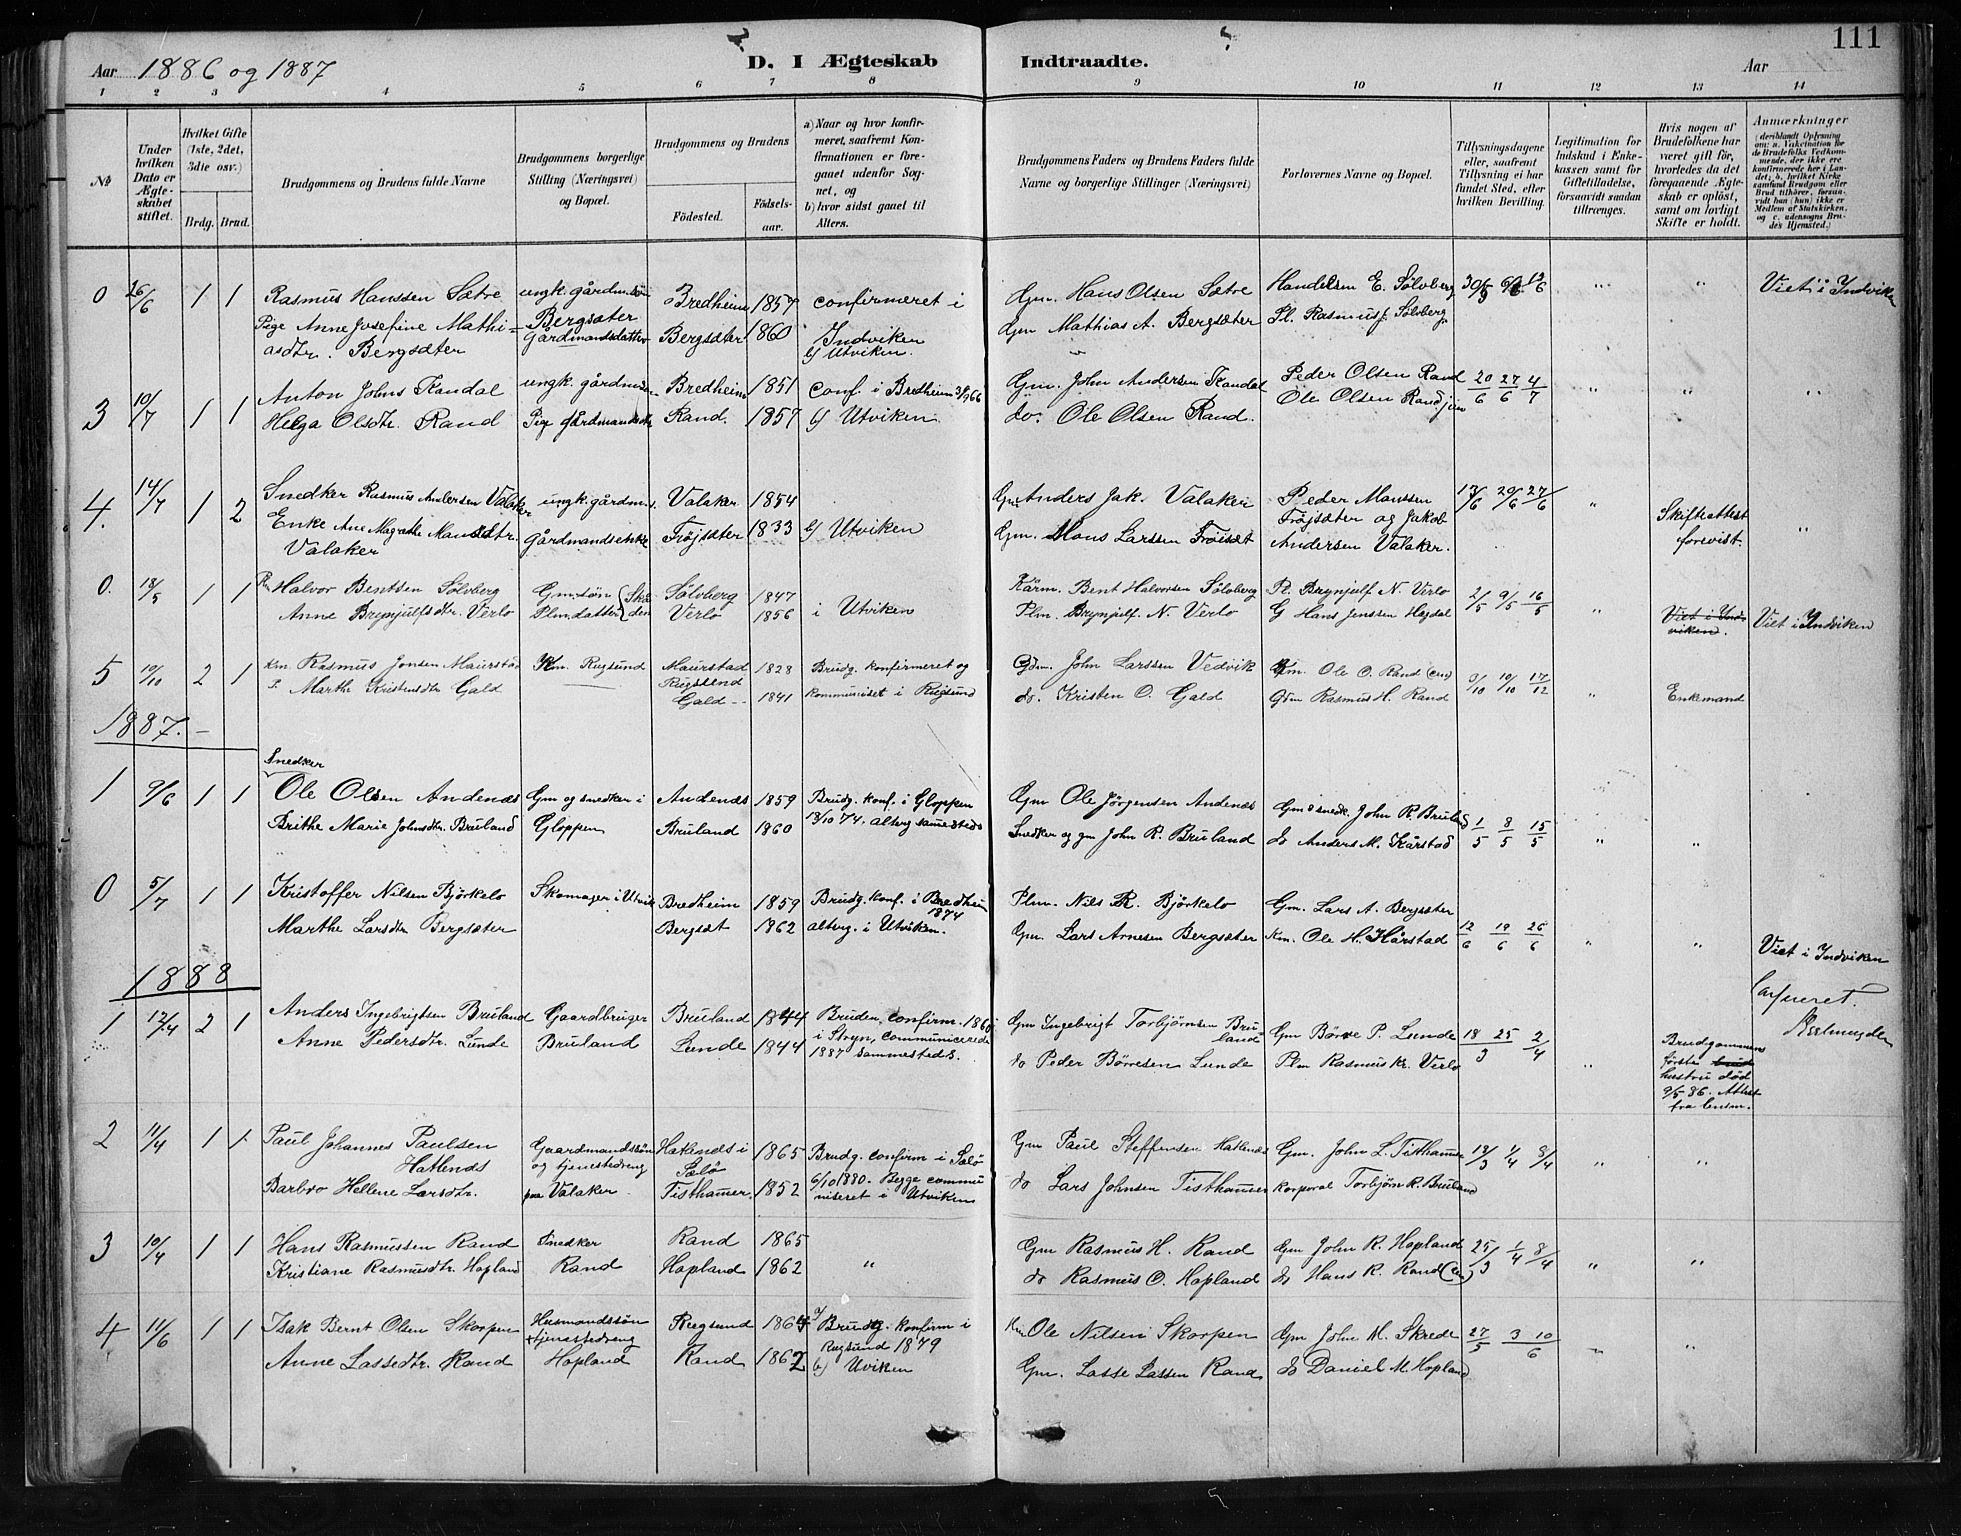 111
Aar 1886 og 1887 D. I Ægteskab Indtraadte. Aar
1 2 3 4 5 6 7 8 9 10 11 12 13 14
No
Under hvilken Dato er Ægteskabet stiftet.
Hvilket Gifte (1ste, 2det, 3die osv.)
Brdg. Brud.
Brudgommens og Brudens fulde Navne
Brudgommens borgerlige Stilling (Næringsvei) og Bopæl.
Brudgommens og Brudens
Fødested. Fødselsaar.
a) Naar og hvor konfirmeret, saafremt Konfirmationen er foregaaet udenfor Sognet, og
b) hvor sidst gaaet til Alters.
Brudgommens Faders og Brudens Faders fulde Navne og borgerlige Stillinger (Næringsvei)
Forlovernes Navne og Bopæl.
Tillysningsdagene eller, saafremt Tillysning ei har fundet Sted, efter hvilken Bevilling.
Legitimation for Indskud i Enkekassen samt for Giftetilladelse, forsaavidt saadan tiltrænges.
Hvis nogen af Brudefolkene har været gift før, hvorledes da det foregaaende Ægteskab er opløst, samt om lovligt Skifte er holdt.
Anmærkninger
(deriblandt Oplysning om: a. Vaksination for de Brudefolks Vedkommende, der ikke ere konfirmerede her i Landet; b. hvilket Kirkesamfund Brudgom eller Brud tilhører, forsaavidt han (hun) ikke er Medlem af Statskirken, og c. udensogns Brudes Hjemsted.)
0 26/6 1 1 Rasmus Hanssen Sætre ungk. gårdm.søn Bredheim 1857 confirmeret i Gm. Hans Olsen Sætre Handelsm E. Sølvberg 30/5 6/6 13/6 " " Viet i Indviken
Pige Anne Josefine Mathiasdtr. Bergsæter Bergsæter Gårdmandsdatter Bergsæter 1860 Indviken b) Utviken. Gm Mathias A. Bergsæter Pl. Rasmus J. Sølvberg
3 10/7 1 1 Anton Johns Kandal ungk. gårdm.søn Bredheim 1851 conf. i Bredheim 3/9 66 Gm. John Andersen Kandal Peder Olsen Rand 20/6 27/6 4/7 " " "
Helga Olsdtr. Rand Pige gårdmandsdtr Rand. 1857 b) Utviken do. Ole Olsen Rand. Ole Olsen Rand jun
4. 14/7 1 2 Snedker Rasmus Andersen Valaker ungk. gårdm.s. Valaker 1854 Gm Anders Jak. Valaker Peder Monssen 13/6 20/6 27/6 " Skifteattest "
Enke Ane Magrethe Mansdtr. Valaker Gårdmandsenke Frøjsæter 1833 b) Utviken Gm. Mons Larssen Frøisæt Frøjsæter og Jakob Andersen Valaker. forevist.
0. 18/5 1 1 Halvor Bentsen Sølvberg Gm.søn (Skåden Sølvberg 1847 Kårm. Bent Halvorsen Sølvberg Pl. Brynjulf N. Verlo 2/5 9/5 16/5 " Viet i Indviken. Viet i Indviken
Anne Brynjulfsdtr. Verlo Plm.datter Verlo 1856 i Utviken Plm. Brynjulf. N. Verlo G Hans Jenssen Hagdal
5 10/10 2 1 Km. Rasmus Jonsen Maurstad Km. Rugsund Maurstad Rugsund 1828 Brudg. konfirmeret og Gdm. John Larssen Vedvik Km. Ole O. Rand (en) 3/10 10/10 17/12 " Enkemand
P. Marthe Kristensdtr Gald Gald 1841 kommuniset i Rugsund do. Kristen O. Gald Gdm Rasmus H. Rand
1887. —
1 9/6 1 1 Snedker Ole Olsen Andenæs Gm og snedker i Andenæs 1859 Brudg. konf. i Gloppen Gm Ole Jørgensen Andenæs Gm & snedk. John R. Bruland 1/5 8/5 15/5 " "
Brithe Marie Johnsdtr. Bruland Gloppen Bruland 1860 18/10 74. alterg sammesteds Snedker og gm John R. Bruland do Anders M. Kårstad
0 5/7 1 1 Kristoffer Nilsen Bjørkelo Skomager i Utvik Bredheim 1859 Brudg. konf. i Bredheim 1874 Plm. Nils R. Bjørkelo Gm. Lars A. Bergsæter 12/6 19/6 26/6 " " Viet i Indviken
Marthe Larsdtr Bergsæter Bergsæt 1862 alterg. i Utviken. Gm. Lars Arnesen Bergsæter Km. Ole H. Kårstad
1888
1 12/4 2 1 Anders Ingebrigtsen Bruland Gaardbruger Bruland 1844 Bruden confirm. 1860 Gm Ingebrigt Torbjørnsen Bruland Gm Børre P. Lunde 18/3 25 2/4 " Brudgommens første hustru død 9/5 86. Attest fra lensm.
Anne Pedersdtr. Lunde Bruland Lunde 1844 i Stryn, communicerede 1887 sammesteds. do Peder Børresen Lunde Plm Rasmus Kr. Verlo
2 11/4 1 1 Paul Johannes Paulsen Hatlenæs Gaardmandssøn og tjenestedreng Hatlenæs i Sælø 1865 Brudg. confirm i Sælø Gm Paul Steffensen Hatlenæs Gm. John L. Tisthamer 18/3 1/4 8/4 " "
Barbro Hellene Larsdtr. paa Valaker Tisthamer 1852 6/10 1880. Begge communiseret i Utviken do Lars Johnsen Tisthamer Korporal Torbjørn R. Bruland
3 10/4 1 1 Hans Rasmussen Rand Snedker Rand 1865 Gm Rasmus H. Rand Gm John R. Hopland 25/3 1/4 8/4 " "
Kristiane Rasmusdtr. Hopland Rand Hopland 1862 " do Rasmus O. Hopland do Hans R. Rand (en)
4 11/6 1 1 Isak Bernt Olsen Skorpen Husmandssøn Rugsund 1864 a) Brudg. konfirm i Km Ole Nilsen Skorpen Gm John M. Skrede 27/5 3 10/6 " "
Anne Lassedtr. Rand tjenestedreng Hopland Rand 1862 Rugsund 1879 b) Utviken Gm. Lasse Lassen Rand do Daniel M. Hopland